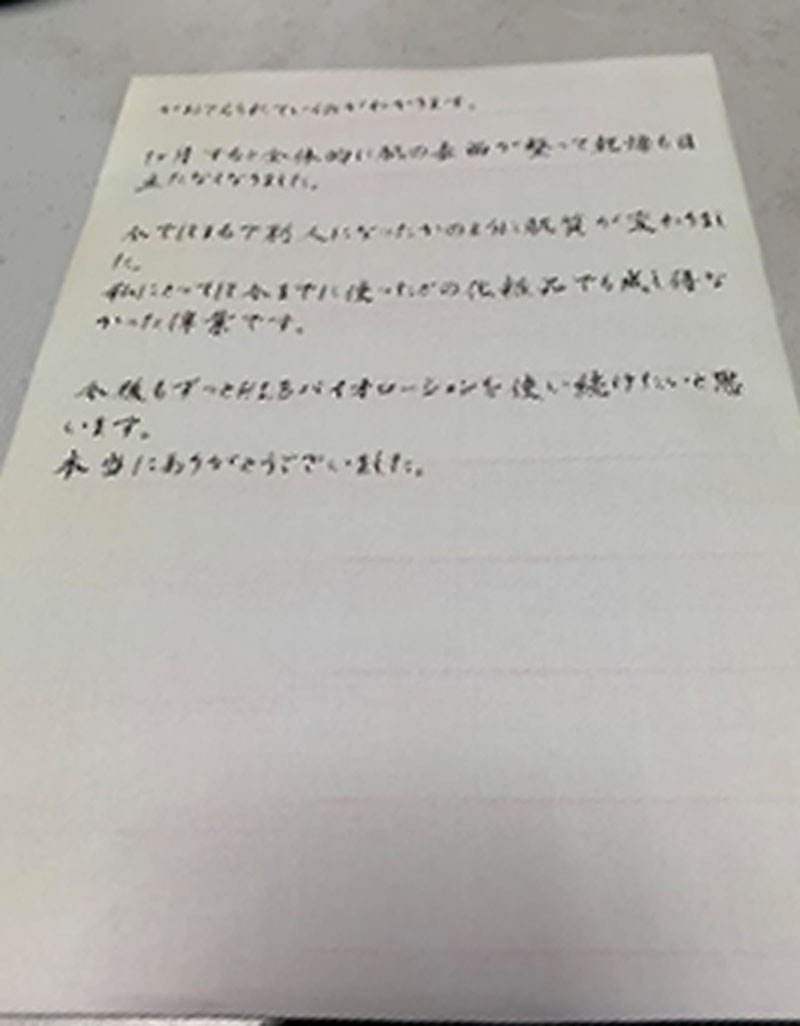 がおさえられているのがわかります。
1ヶ月すると全体的に肌の表面が整って乾燥も目
立たなくなりました。
今ではまるで別人になったかのように肌質が変わりまし
た。
私にとっては今までに使ったどの化粧品でも成し得な
かった偉業です。
今後もずっとバイオローションを使い続けたいと思
います。
本当にありがとうございました。